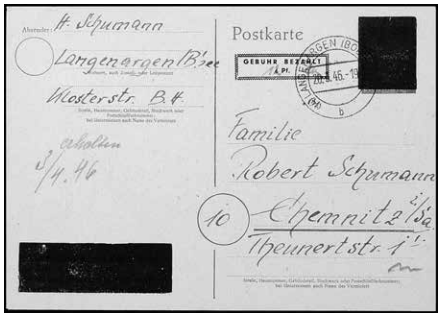 Absender: H. Schumann
Langenargen/B'see
Wohnort, auch Zustell- oder Leitpostamt
Klosterstr. B.H.
Straße, Hausnummer, Gebäudeteil, Stockwerk oder Postschließfachnummer;
bei Untermietern auch Name des Vermieters
erhalten
3/4.46
Postkarte
GEBÜHR BEZAHLT
Pf.
LANGENARGEN (BOD
20.3.46.-1
b
Familie
Robert Schumann
10
Chemnitz i/Sa.
Theunertstr. 1
Straße, Hausnummer, Gebäudeteil, Stockwerk oder Postschließfachnummer;
bei Untermietern auch Name des Vermieters